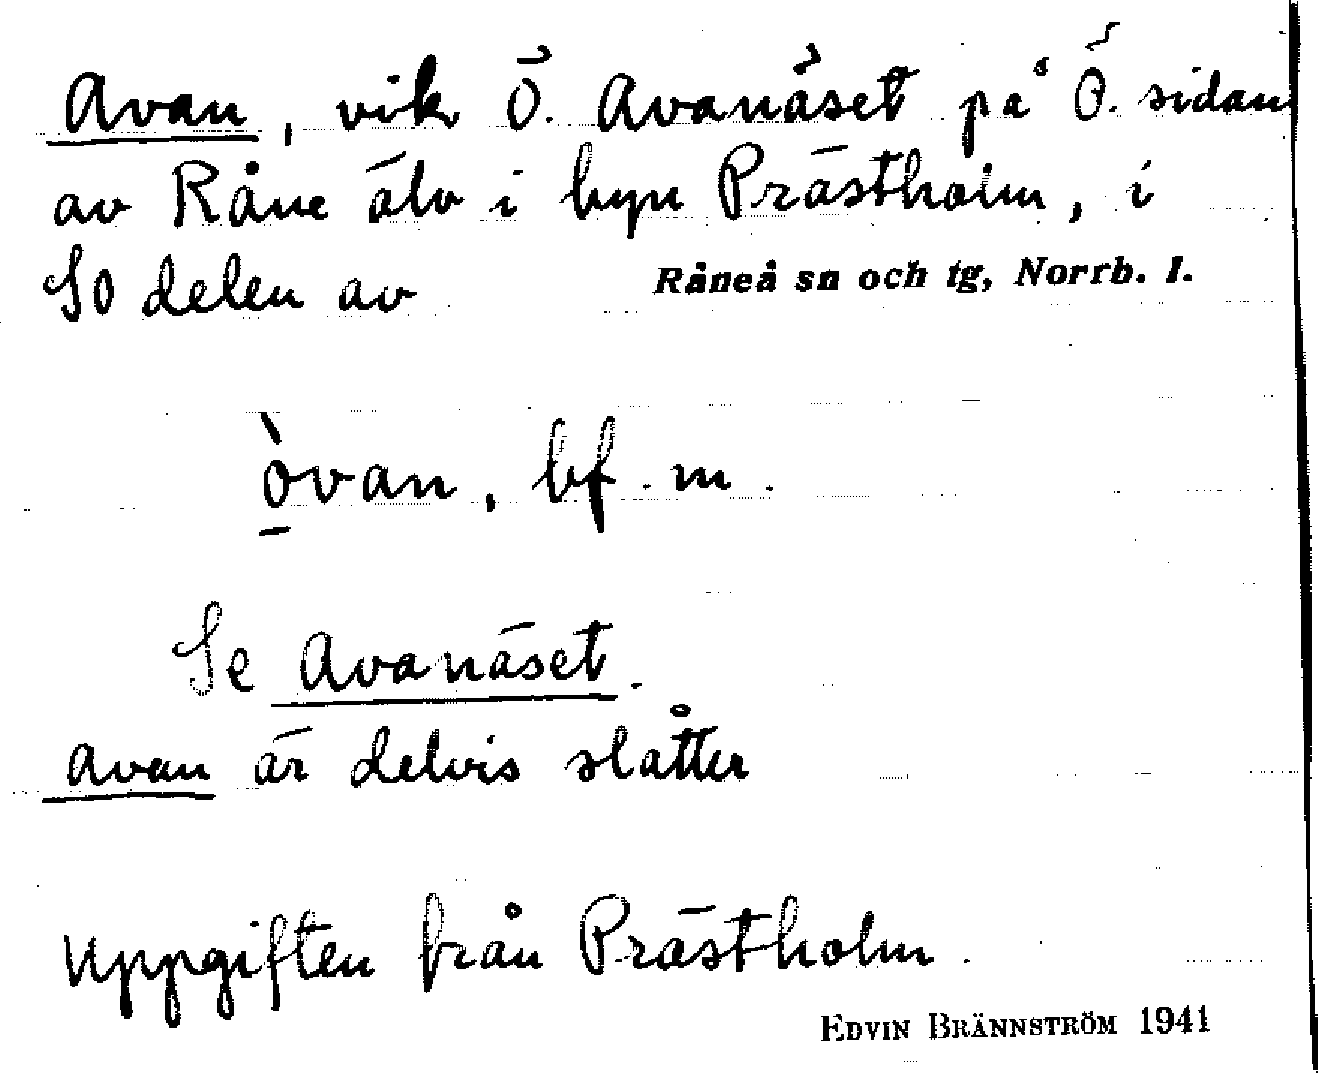 Avan, vik Ö. Avanäset på Ö. sidan
av Råne älv i byn Prästholm, i
SO delen av Råneå sn och tg, Norrb. l.
òvan, bf. m.
Se Avanäset.
Avan är delvis slåtter
Uppgiften från Prästholm.
EDVIN BRÄNNSTRÖM 1941